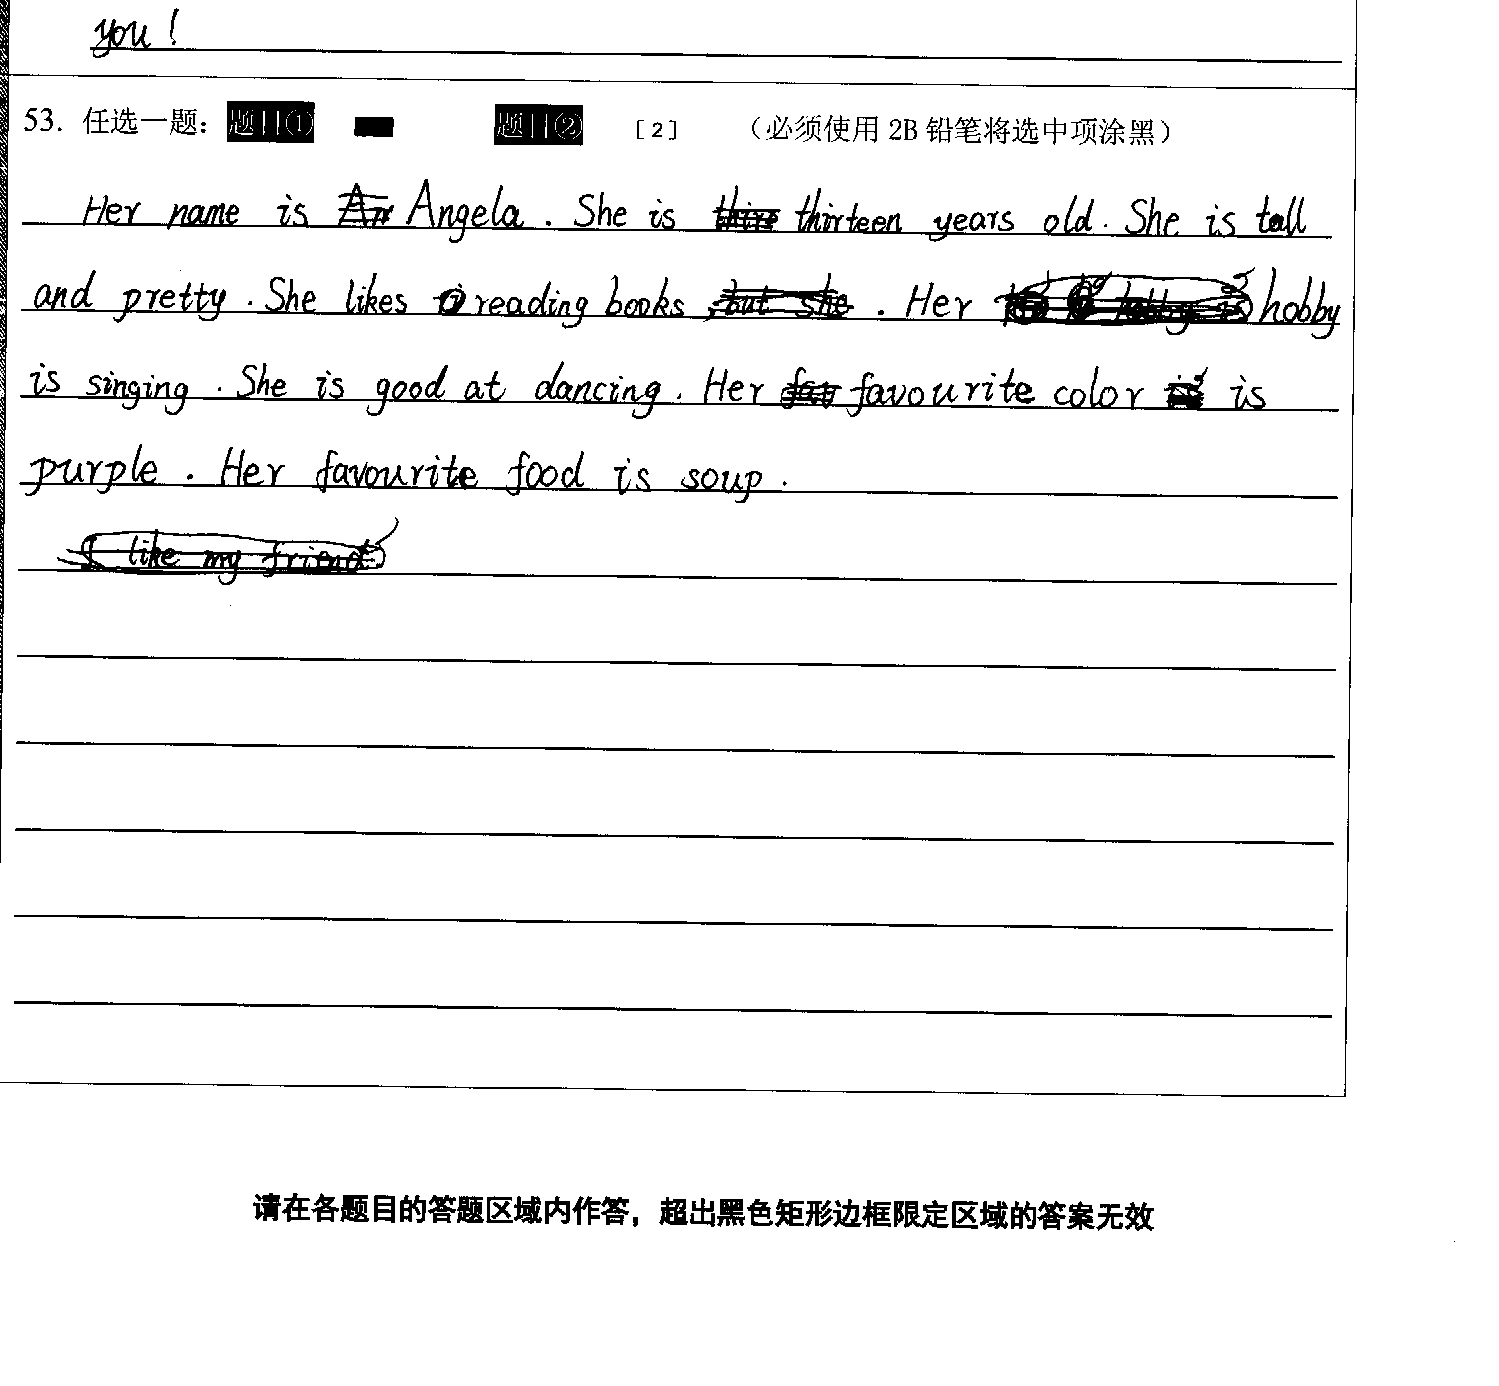 you!
53. 任选一题： 题目① 题目② [2] （必须使用 2B 铅笔将选中项涂黑）
Her name is Angela. She is thirteen years old. She is tall
and pretty. She likes reading books . Her hobby
is singing. She is good at dancing. Her favourite color is
purple. Her favourite food is soup.
I like my friend
请在各题目的答题区域内作答，超出黑色矩形边框限定区域的答案无效